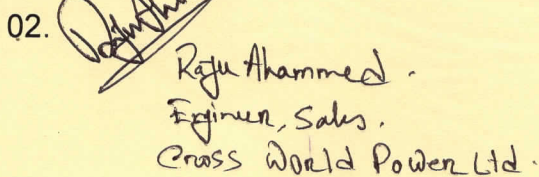 02.
Raju Ahammed.
Engineer, Sales.
Cross World Power Ltd.